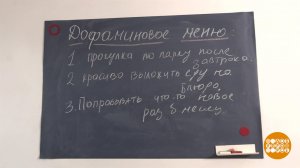 Дофаминовое меню:
1 прогулка по парку после
завтрака.
2. красиво выложить еду на
блюдо.
3. Попробовать что-то новое
раз в месяц